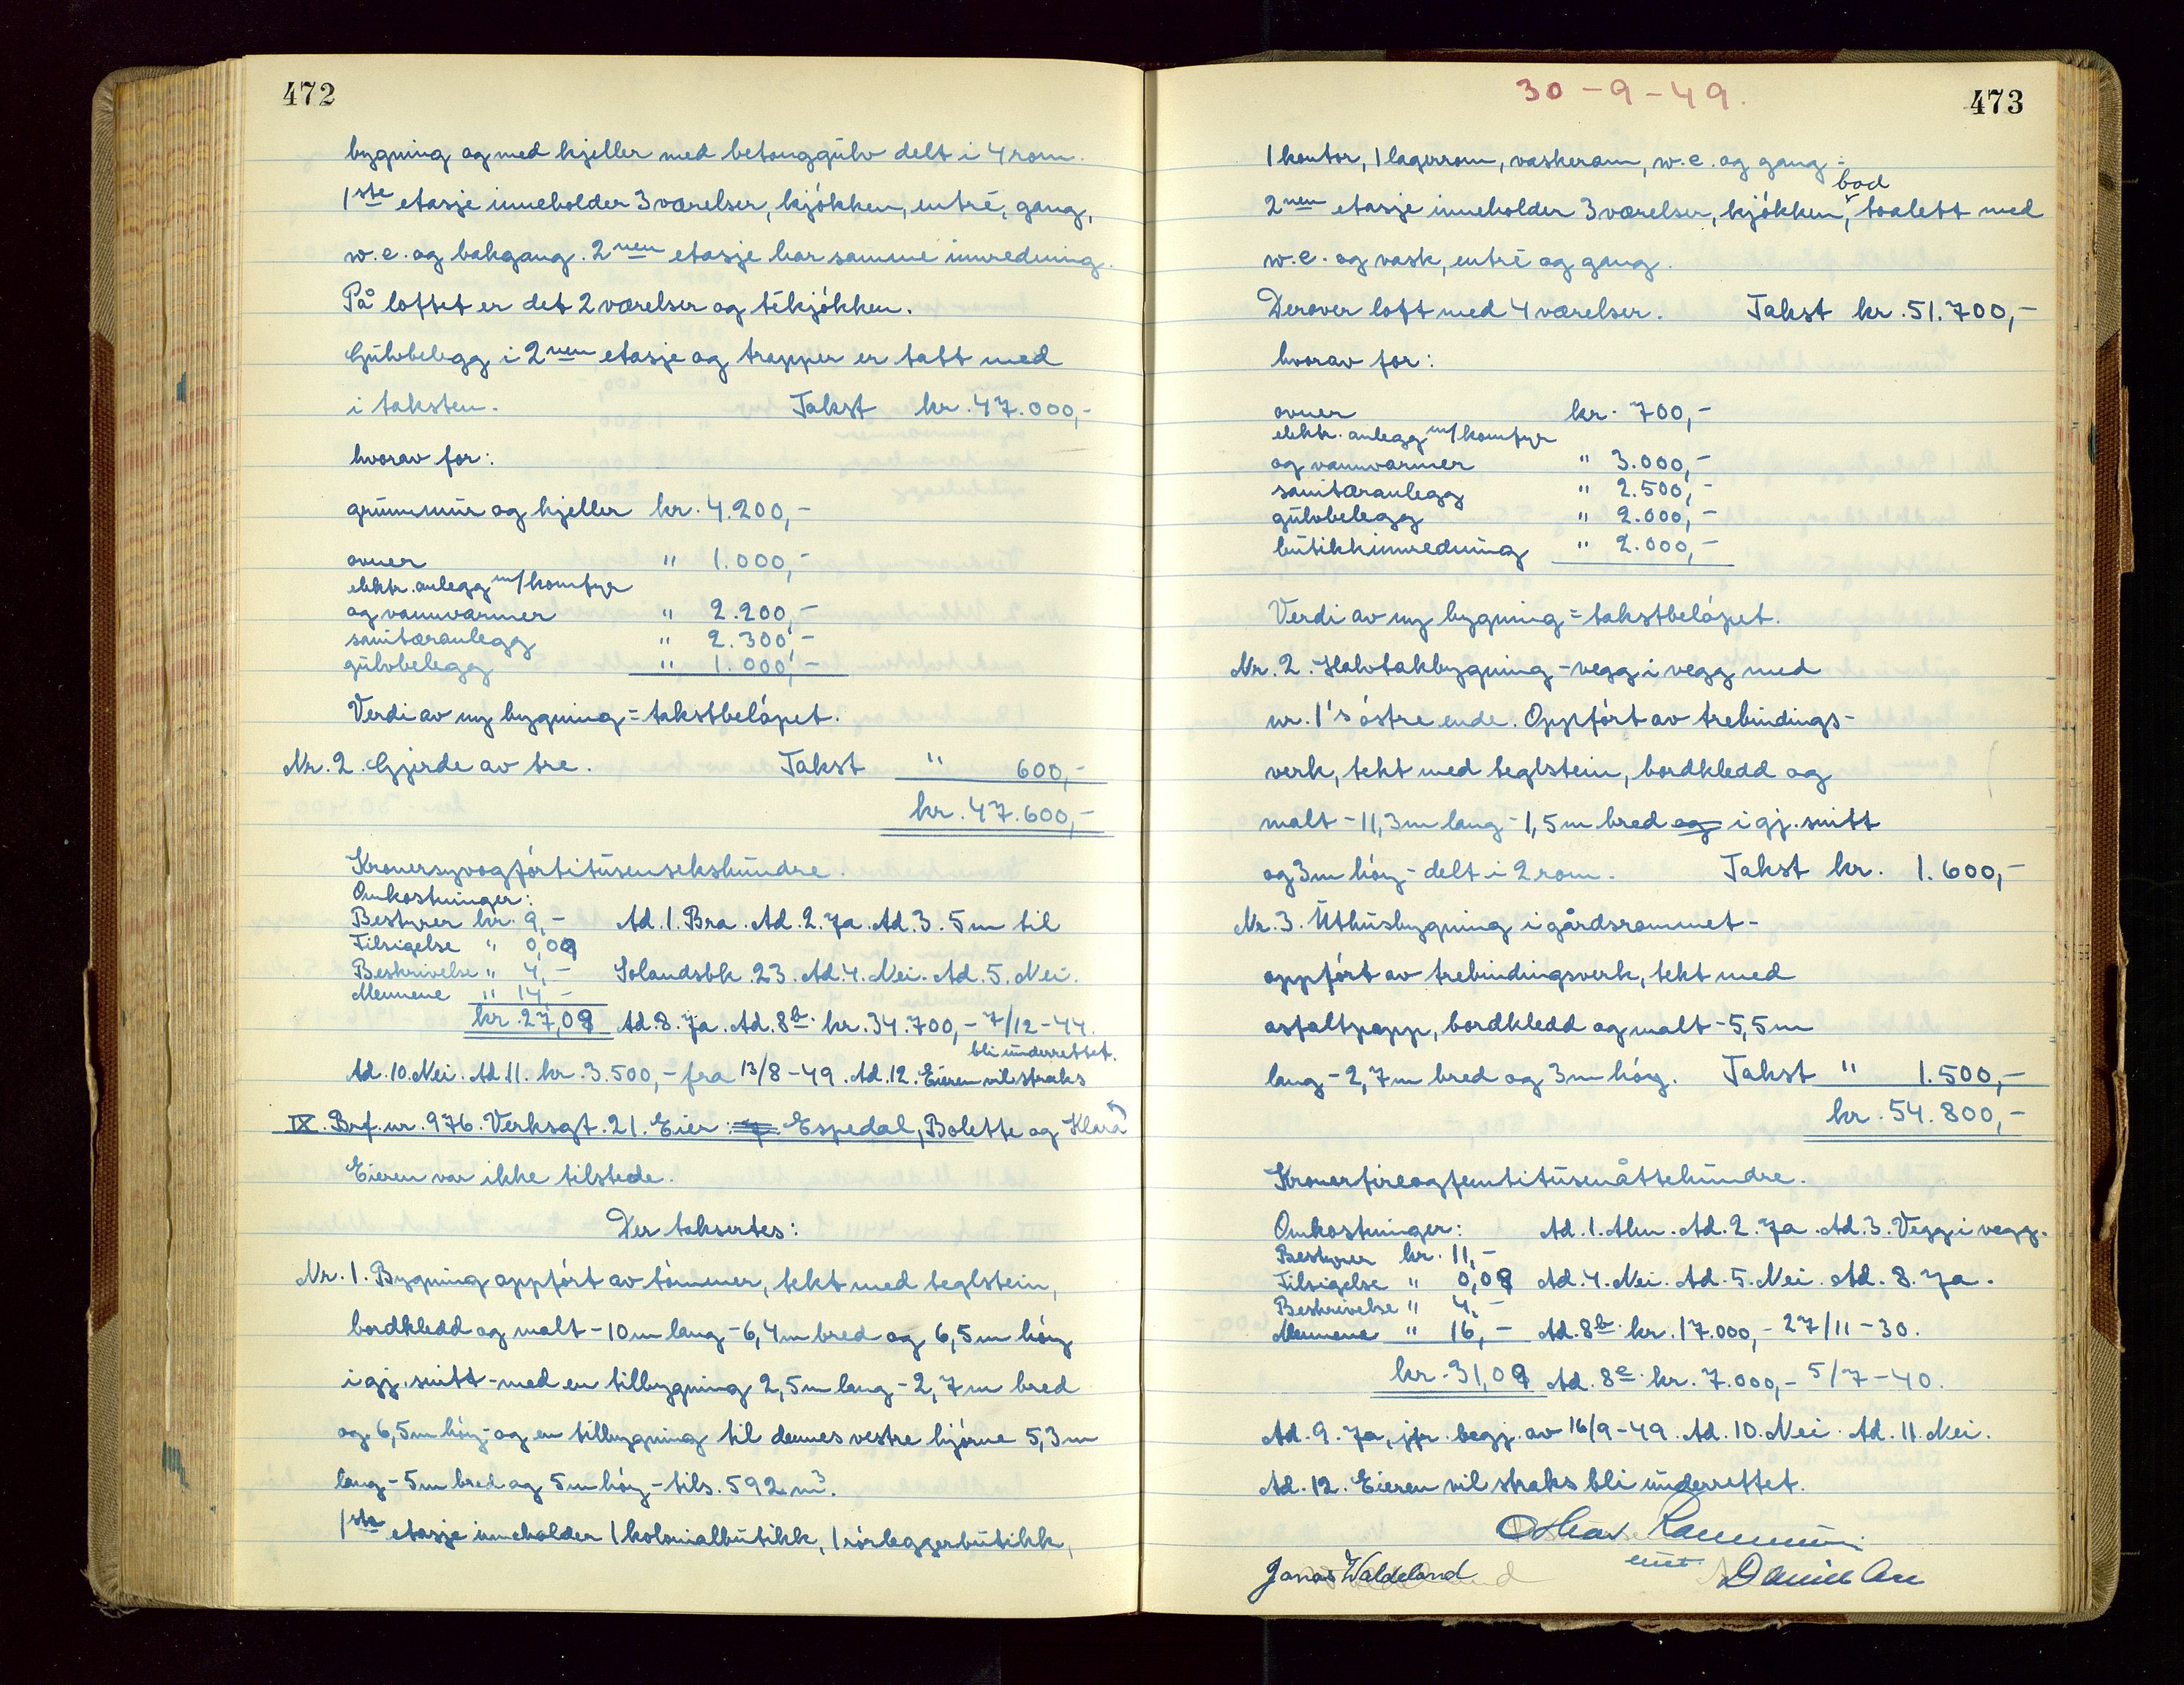 472
bygning og med kjeller med betonggulv delt i 4 rom.
1ste etasje inneholder 3 værelser, kjökken, entré, gang,
w.c. og bakgang. 2nen etasje har samme innredning.
På loftet er det 2 værelser og tékjökken.
Gulvbelegg i 2nen etasje og trapper er tatt med
i taksten. Takst kr. 47.000,-
hvorav for:
grunnmur og kjeller kr. 4.200,-
ovner " 1.000,-
elektr. anlegg m/komfyr
og vannvarmer " 2.200,-
sanitæranlegg " 2.300,-
gulvbelegg " 1.000,-
Verdi av ny bygning = takstbelöpet.
Nr. 2. Gjerde av tre. Takst " 600,-
kr. 47.600,-
Kronersyvogförtitusensekshundre.
Omkostninger:
Bestyrer kr. 9,- Ad. 1. Bra. Ad. 2. Ja. Ad. 3. 5 m til
Tilsigelse " 0,09
Beskrivelse " 4,- Solandsbk. 23. Ad. 4. Nei. Ad. 5. Nei.
Mennene " 14,-
kr. 27,09 Ad. 8. Ja. Ad. 8b. kr. 34.700,- 7/12-44.
bli underrettet.
Ad. 10. Nei. Ad 11. kr. 3.500,- fra 13/8-49. Ad. 12. Eieren vil straks
IX. Brf. nr. 976. Verksgt. 21. Eier: Espedal, Bolette og Klara
Eieren var ikke tilstede.
Der taksertes:
Nr. 1. Bygning oppfört av tömmer, tekt med teglstein,
bordkledd og malt - 10 m lang - 6,4 m bred og 6,5 m höy
i gj. snitt - med en tilbygning 2,5 m lang - 2,7 m bred
og 6,5 m höy - og en tilbygning til dennes vestre hjörne 5,3 m
lang - 5 m bred og 5 m höy - tils. 592 m3.
1ste etasje inneholder 1 kolonialbutikk, 1 rörleggerbutikk,
30-9-49.
473
1 kontor, 1 lagerrom, vaskerom, w.c. og gang.
bad
2nen etasje inneholder 3 værelser, kjökken, toalett med
w.c. og vask, entré og gang.
Derover loft med 4 værelser. Takst kr. 51.700,-
hvorav for:
ovner kr. 700,-
elektr. anlegg m/komfyr
og vannvarmer " 3.000,-
sanitæranlegg " 2.500,-
gulvbelegg " 2.000,-
butikkinnredning " 2.000,-
Verdi av ny bygning = takstbelöpet.
Nr. 2. Halvtakbygning - vegg i vegg med
nr. 1's östre ende. Oppfört av trebindings-
verk, tekt med teglstein, bordkledd og
malt - 11,3 m lang - 1,5 m bred og i gj. snitt
og 3 m höy - delt i 2 rom. Takst kr. 1.600,-
Nr. 3. Uthusbygning i gårdsrommet -
oppfört av trebindingsverk, tekt med
asfaltpapp, bordkledd og malt - 5,5 m
lang - 2,7 m bred og 3 m höy. Takst " 1.500,-
kr. 54.800,-
Kronerfireogfemtitusenåttehundre.
Omkostninger: Ad. 1. Alm. Ad. 2. Ja. Ad. 3. Vegg i vegg.
Bestyrer kr. 11,-
Tilsigelse " 0,09 Ad. 4. Nei. Ad. 5. Nei. Ad. 8. Ja.
Beskrivelse " 4,-
Mennene " 16,- Ad. 8b. kr. 17.000,- 27/11-30.
kr. 31,09 Ad. 8c. kr. 7.000,- 5/7-40.
Ad. 9. Ja, jfr. begj. av 16/9-49. Ad. 10. Nei. Ad. 11. Nei.
Ad. 12. Eieren vil straks bli underrettet.
Jonas Waldeland